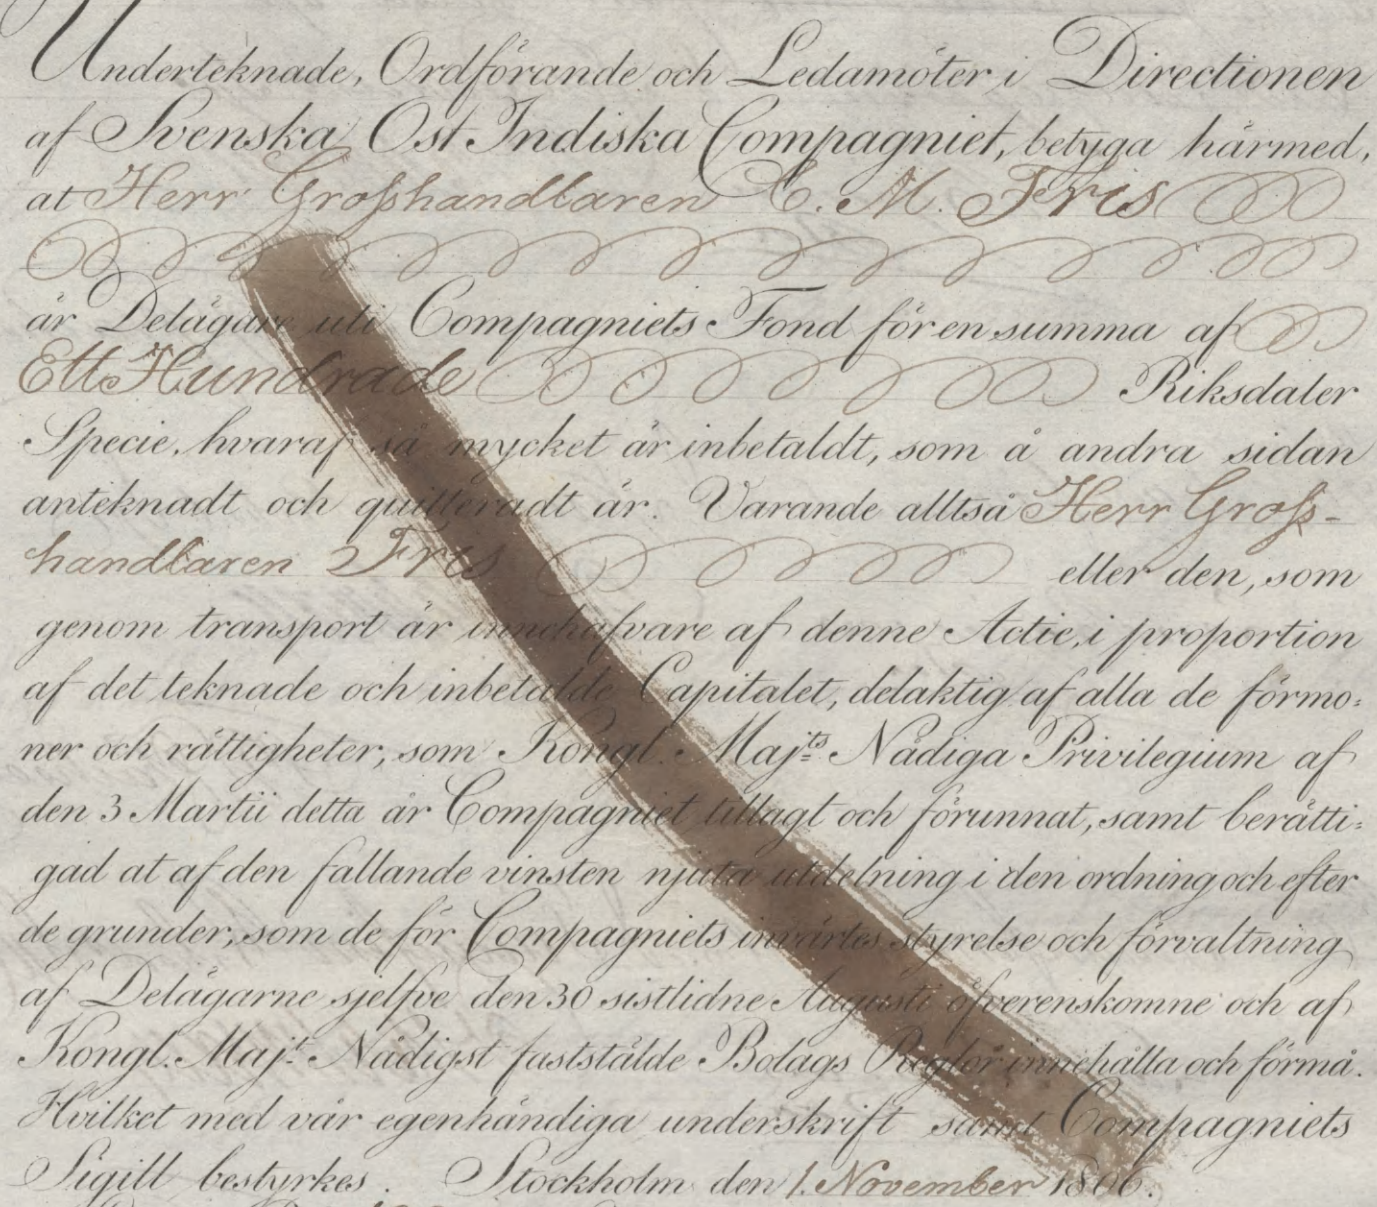 Underteknade, Ordförande och Ledamöter i Directionen
af Svenska Ost Indiska Compagniet, betyga härmed,
at Herr Grosshandlaren C. M. Fris
är Delägare uti Compagniets Fond för en summa af
Ett Hundrade Riksdaler
Specie, hvaraf så mycket är inbetaldt, som å andra sidan
anteknadt och quitteradt är. Varande alltså Herr Gross-
handlaren Fris eller den, som
genom transport är innehafvare af denne Actie, i proportion
af det teknade och inbetalde Capitalet, delaktig af alla de förmo:
ner och rättigheter, som Kongl. Maj:ts Nådiga Privilegium af
den 3 Martii detta år Compagniet tillagt och förunnat, samt berätti:
gad at af den fallande vinsten njuta utdelning i den ordning och efter
de grunder, som de för Compagniets invärtes styrelse och förvaltning
af Delägarne sjelfve den 30 sistlidne Augusti öfverenskomne och af
Kongl. Maj:t Nådigst faststälde Bolags Reglor innehålla och förmå.
Hvilket med vår egenhändiga underskrift samt Compagniets
Sigill bestyrkes. Stockholm den 1. November 1806.